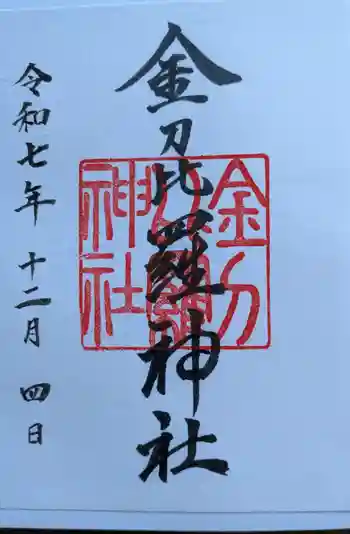 金刀比羅神社
金刀
神社
令和七年 十二月 四日